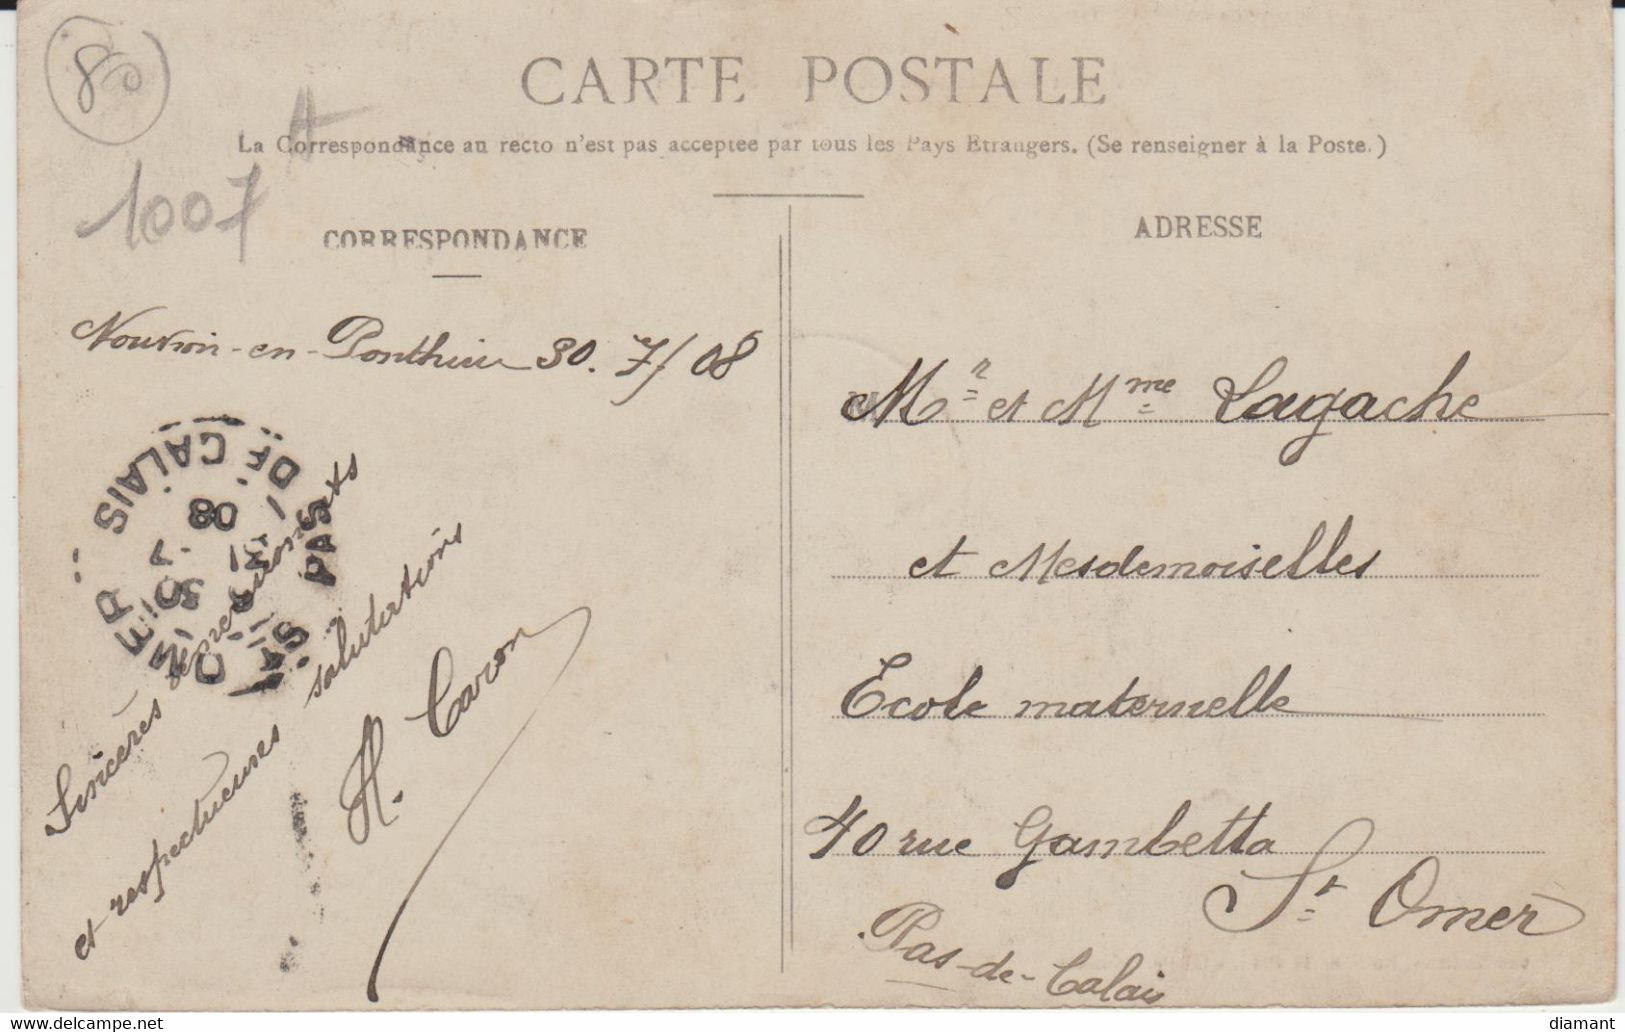 CARTE POSTALE
La Correspondance au recto n'est pas acceptée par tous les Pays Etrangers. (Se renseigner à la Poste.)
80
A
1007
CORRESPONDANCE
ADRESSE
Nouvion-en-Ponthieu 30. 7/08
Sincères
et respectueuses salutations
A. Caron
ST OMER
PAS DE CALAIS
30
7
08
M
Mr et Mme Lagache
et Mesdemoiselles
Ecole maternelle
40 rue Gambetta
St Omer
Pas-de-Calais
www.delcampe.net
diamant